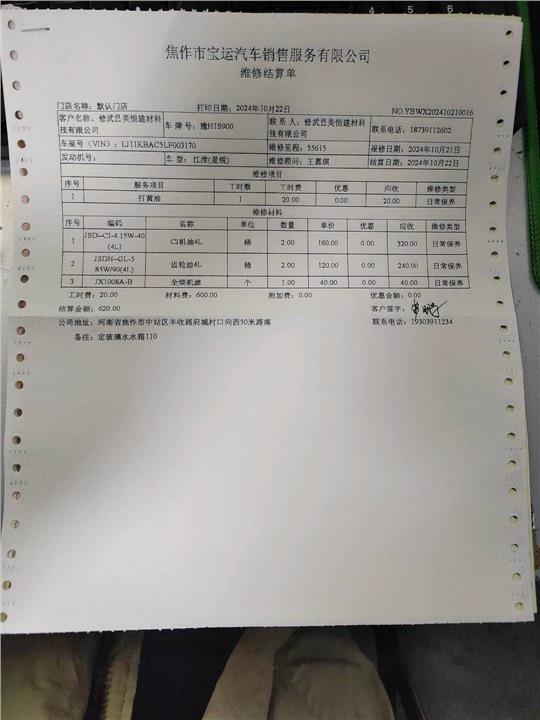 4 5 6
焦作市宝运汽车销售服务有限公司
维修结算单
门店名称：默认门店 打印日期：2024年10月22日 NO.YBWX202410210016
客户名称：修武县美恒建材科技有限公司 车 牌 号：豫H1S900 联 系 人：修武县美恒建材科技有限公司 联系电话：18739112602
车架号（VIN）：LJ11KBAC5LF003170 维修里程：55615 报修日期：2024年10月21日
发动机号： 车 型：江淮(星锐) 维修顾问：王嘉琪 结算日期：2024年10月22日
维修项目
序号 服务项目 工时数 工时费 优惠 应收 维修类型
1 打黄油 1 20.00 0.00 20.00 日常保养
维修材料
序号 编码 名称 单位 数量 单价 优惠 应收 维修类型
1 JSD-CJ-4 15W-40(4L) CJ机油4L 桶 2.00 160.00 0.00 320.00 日常保养
2 JSDH-GL-5 85W/90(4L) 齿轮油4L 桶 2.00 120.00 0.00 240.00 日常保养
3 JX1008A-B 全柴机滤 个 1.00 40.00 0.00 40.00 日常保养
工时费：20.00 材料费：600.00 附加费：0.00 优惠金额：0.00
结算金额：620.00 客户签字：
公司地址：河南省焦作市中站区丰收路府城村口向西50米路南 联系电话：19303911234
备注：定玻璃水水箱110